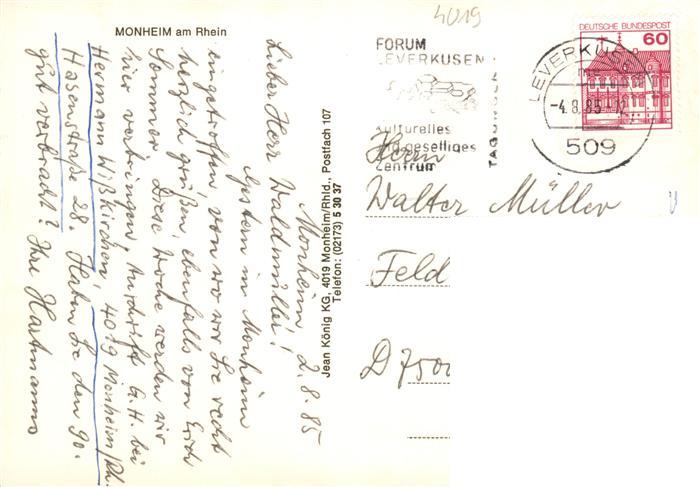 MONHEIM am Rhein
Monheim 2.8.85
Lieber Herr Waldmüller!
Gestern in Monheim
eingetroffen, von wo wir Sie recht
herzlich grüßen, ebenfalls von Erich
Sommer. Diese Woche werden wir
hier verbringen, Anschrift b.H. bei
Hermann Wißkirchen, 4019 Monheim/Rh.
Hasenstraße 28. Haben Sie den 90.
gut verbracht? Ihre Hartmanns
Jean König KG, 4019 Monheim/Rhld., Postfach 107
Telefon: (02173) 5 30 37
4019
FORUM
LEVERKUSEN
kulturelles
und geselliges
Zentrum
TAGUNGEN
LEVERKUSEN
-4.8.85-12
509
DEUTSCHE BUNDESPOST
60
Herrn
Walter Müller
Feld
D 7500